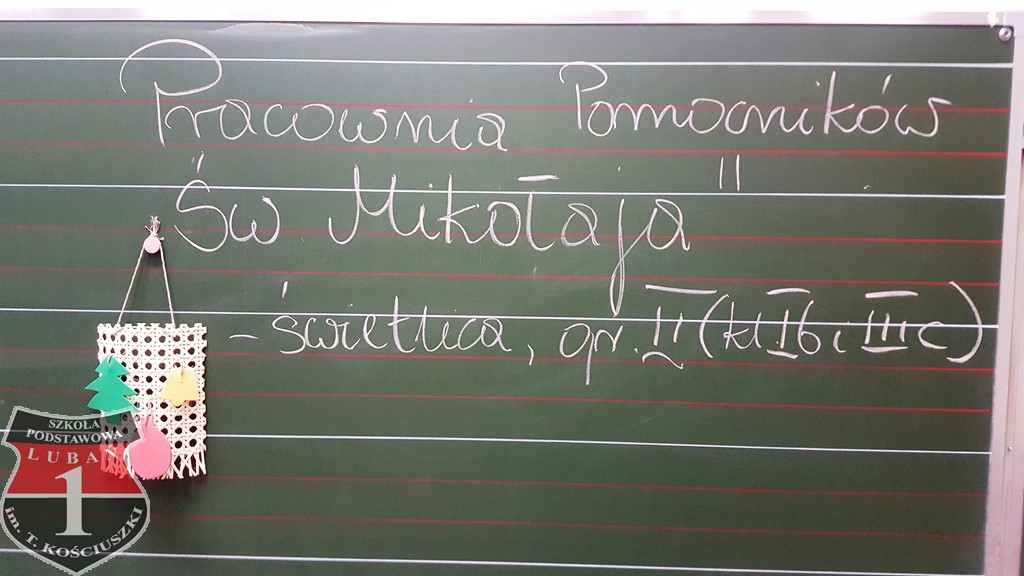 Pracownia Pomocników
"Św Mikołaja"
- świetlica, gr. II (kl. Ib i III c)
SZKOŁA
PODSTAWOWA
LUBAŃ
1
im. T. KOŚCIUSZKI